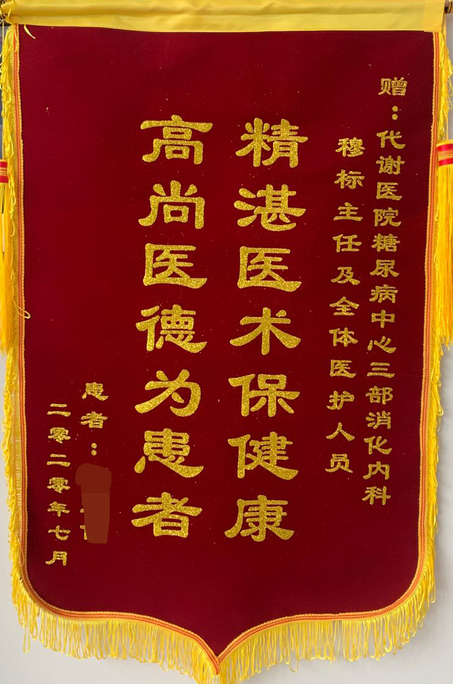 赠：代谢医院糖尿病中心三部消化内科
穆标主任及全体医护人员
精湛医术保健康
高尚医德为患者
患者：
二零二零年七月